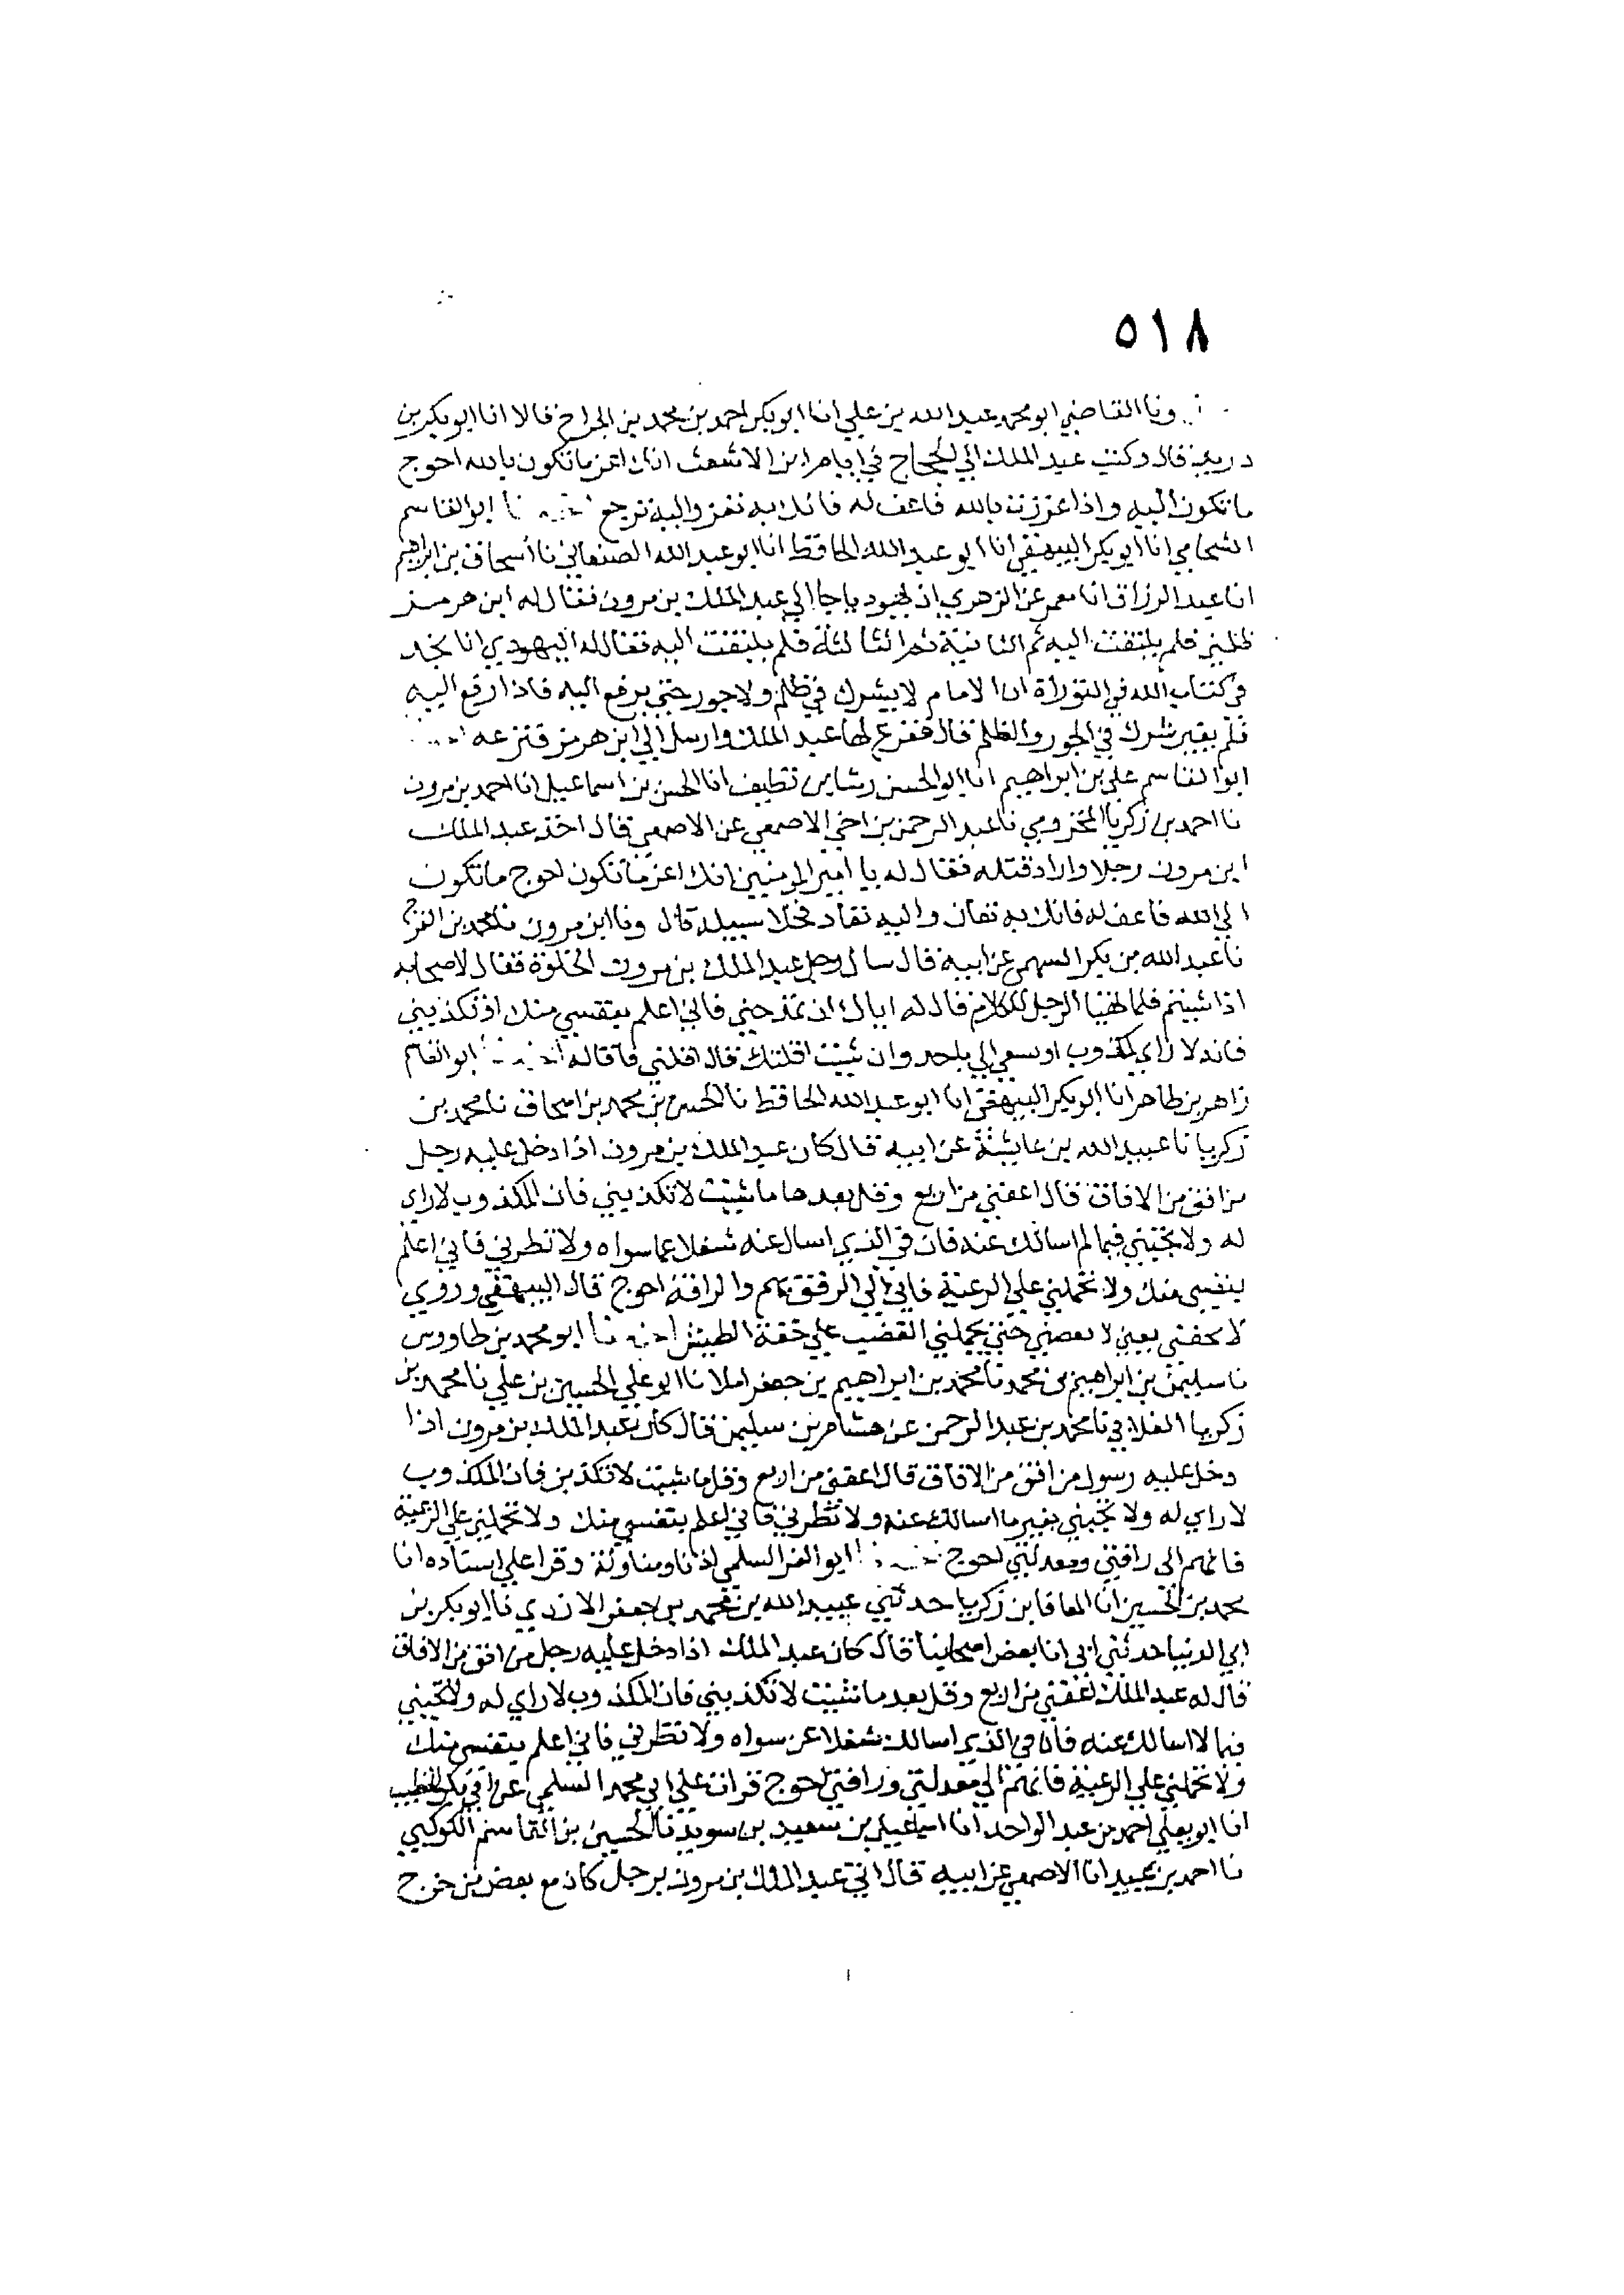 ٥١٨
ونا القاضي ابو محمد عبد الله بن علي انا ابو بكر احمد بن محمد بن الجراح قالا انا ابو بكر بن
دريد قال وكتب عبد الملك الي الحجاج في ايام ابن الاشعث انك اعز ما تكون بالله احوج
ما تكون اليه واذا عززت بالله فاعف له فانك به تعز واليه ترجع نا ابو القاسم
الشحامي انا ابو بكر البيهقي انا ابو عبد الله الحافظ انا ابو عبد الله الصنعاني نا اسحاق بن ابراهيم
انا عبد الرزاق انا معمر عن الزهري ان يهوديا جا الي عبد الملك بن مرون فقال له ابن هرمز
ظلمني فلم يلتفت اليه ثم الثانية ثم الثالثة فلم يلتفت اليه فقال له اليهودي انا نجد
في كتاب الله في التوراة ان الامام لا يشرك في ظلم ولا جور حتي يرفع اليه فاذا رفع اليه
فلم يغير شرك في الجور والظلم قال ففزع لها عبد الملك وارسل الي ابن هرمز فنزعه
ابو القاسم علي بن ابراهيم انا ابو الحسن رشا بن نظيف انا الحسن بن اسماعيل انا احمد بن مرون
نا احمد بن زكريا المخزومي نا عبد الرحمن بن اخي الاصمعي عن الاصمعي قال اخذ عبد الملك
ابن مرون رجلا واراد قتله فقال له يا امير المومنين انك اعز ما تكون احوج ما تكون
الي الله فاعف له فانك به تعان واليه تعاد فخلا سبيله قال ونا ابن مرون نا محمد بن الفرج
نا عبد الله بن بكر السهمي عن ابيه قال سال رجل عبد الملك بن مرون الخلوة فقال لاصحابه
اذا شيتم فلما تهيا الرجل للكلام قال له اياك ان تمدحني فاني اعلم بنفسي منك او تكذبني
فانه لا راي لمكذوب او تسعي الي باحد وان شيت اقلتك قال اقلني فاقاله ابو القاسم
زاهر بن طاهر انا ابو بكر البيهقي انا ابو عبد الله الحافظ نا الحسن بن محمد بن اسحاق نا محمد بن
زكريا نا عبيد الله بن عايشة عن ابيه قال كان عبد الملك بن مرون اذا دخل عليه رجل
من افق من الافاق قال اعفني من اربع وقل بعدها ما شيت لا تكذبني فان المكذوب لا راي
له ولا تجيبني فيما لم اسالك عنه فان في الذي اسال عنه شغلا عما سواه ولا تطرني فاني اعلم
بنفسي منك ولا تحملني علي الرعية فاني الي الرفق بهم والرافة احوج قال البيهقي وروي
يحملني الغضب علي خفة الطيش نا ابو محمد بن طاووس
نا سليمن بن ابراهيم بن محمد نا محمد بن ابراهيم بن جعفر املا نا ابو علي الحسين بن علي نا محمد بن
زكريا الغلابي نا محمد بن عبد الرحمن عن هشام بن سليمن قال كان عبد الملك بن مرون اذا
دخل عليه رسول من افق من الافاق قال اعفني من اربع وقل ما شيت لا تكذبني فان المكذوب
لا راي له ولا تجبني بغير ما اسالك عنه ولا تطرني فاني اعلم بنفسي منك ولا تحملني علي الرعية
فانهم الى رافتي ومعدلتي احوج ابو العز السلمي اذنا ومناولة وقرا علي اسناده انا
محمد بن الحسين انا المعافا بن زكريا حدثني عبيد الله بن محمد بن جعفر الازدي نا ابو بكر بن
ابي الدنيا حدثني ابي انا بعض اصحابنا قال كان عبد الملك اذا دخل عليه رجل من افق من الافاق
قال له عبد الملك اعفني من اربع وقل بعد ما شيت لا تكذبني فان المكذوب لا راي له ولا تجبني
فيما لا اسالك عنه فان في الذي اسالك شغلا عن سواه ولا تطرني فاني اعلم بنفسي منك
ولا تحملني علي الرعية فانهم الي معدلتي ورافتي احوج قرات علي ابي محمد السلمي عن ابي بكر الخطيب
انا ابو يعلي احمد بن عبد الواحد انا اسماعيل بن سعيد بن سويد نا الحسين بن القاسم الكوكبي
نا احمد بن عبيد انا الاصمعي عن ابيه قال اتي عبد الملك بن مرون برجل كان مع بعض من خرج